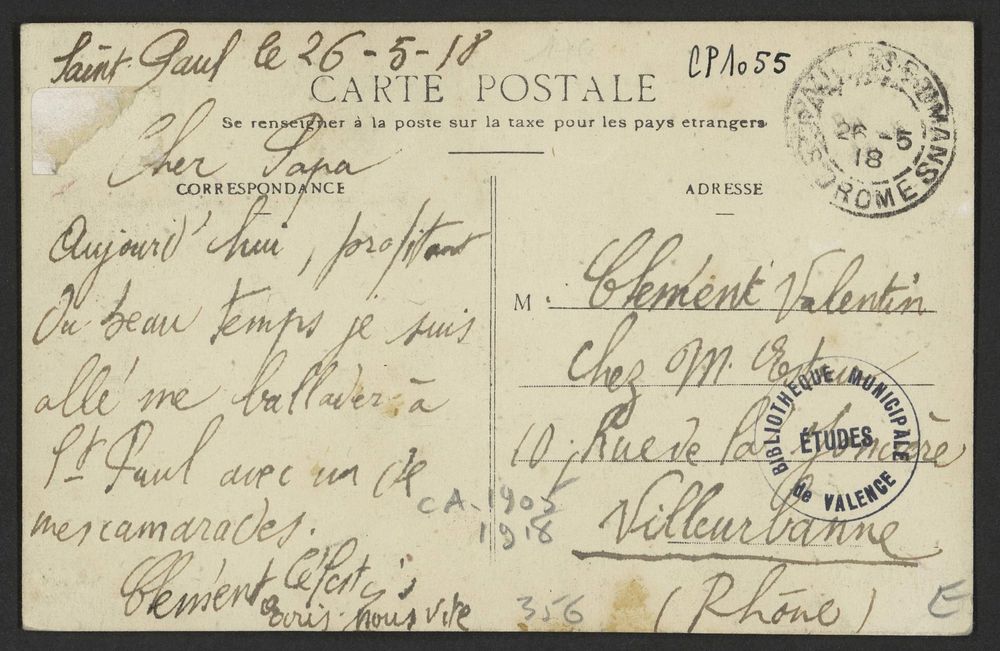 Saint-Paul le 26-5-18
CP1055
CARTE POSTALE
Se renseigner à la poste sur la taxe pour les pays etrangers
Cher Papa
CORRESPONDANCE
Aujourd'hui, profitant
Du beau temps je suis
allé me ballader à
St Paul avec un de
mes camarades.
Clément
Ecris nous vite
ADRESSE
M. Clément Valentin
chez M.
10, Rue de la
Villeurbanne
(Rhône)
ROMANS
26-5
18
DROME
BIBLIOTHÈQUE MUNICIPALE
ÉTUDES
de VALENCE
CA. 1905
1918
356
E